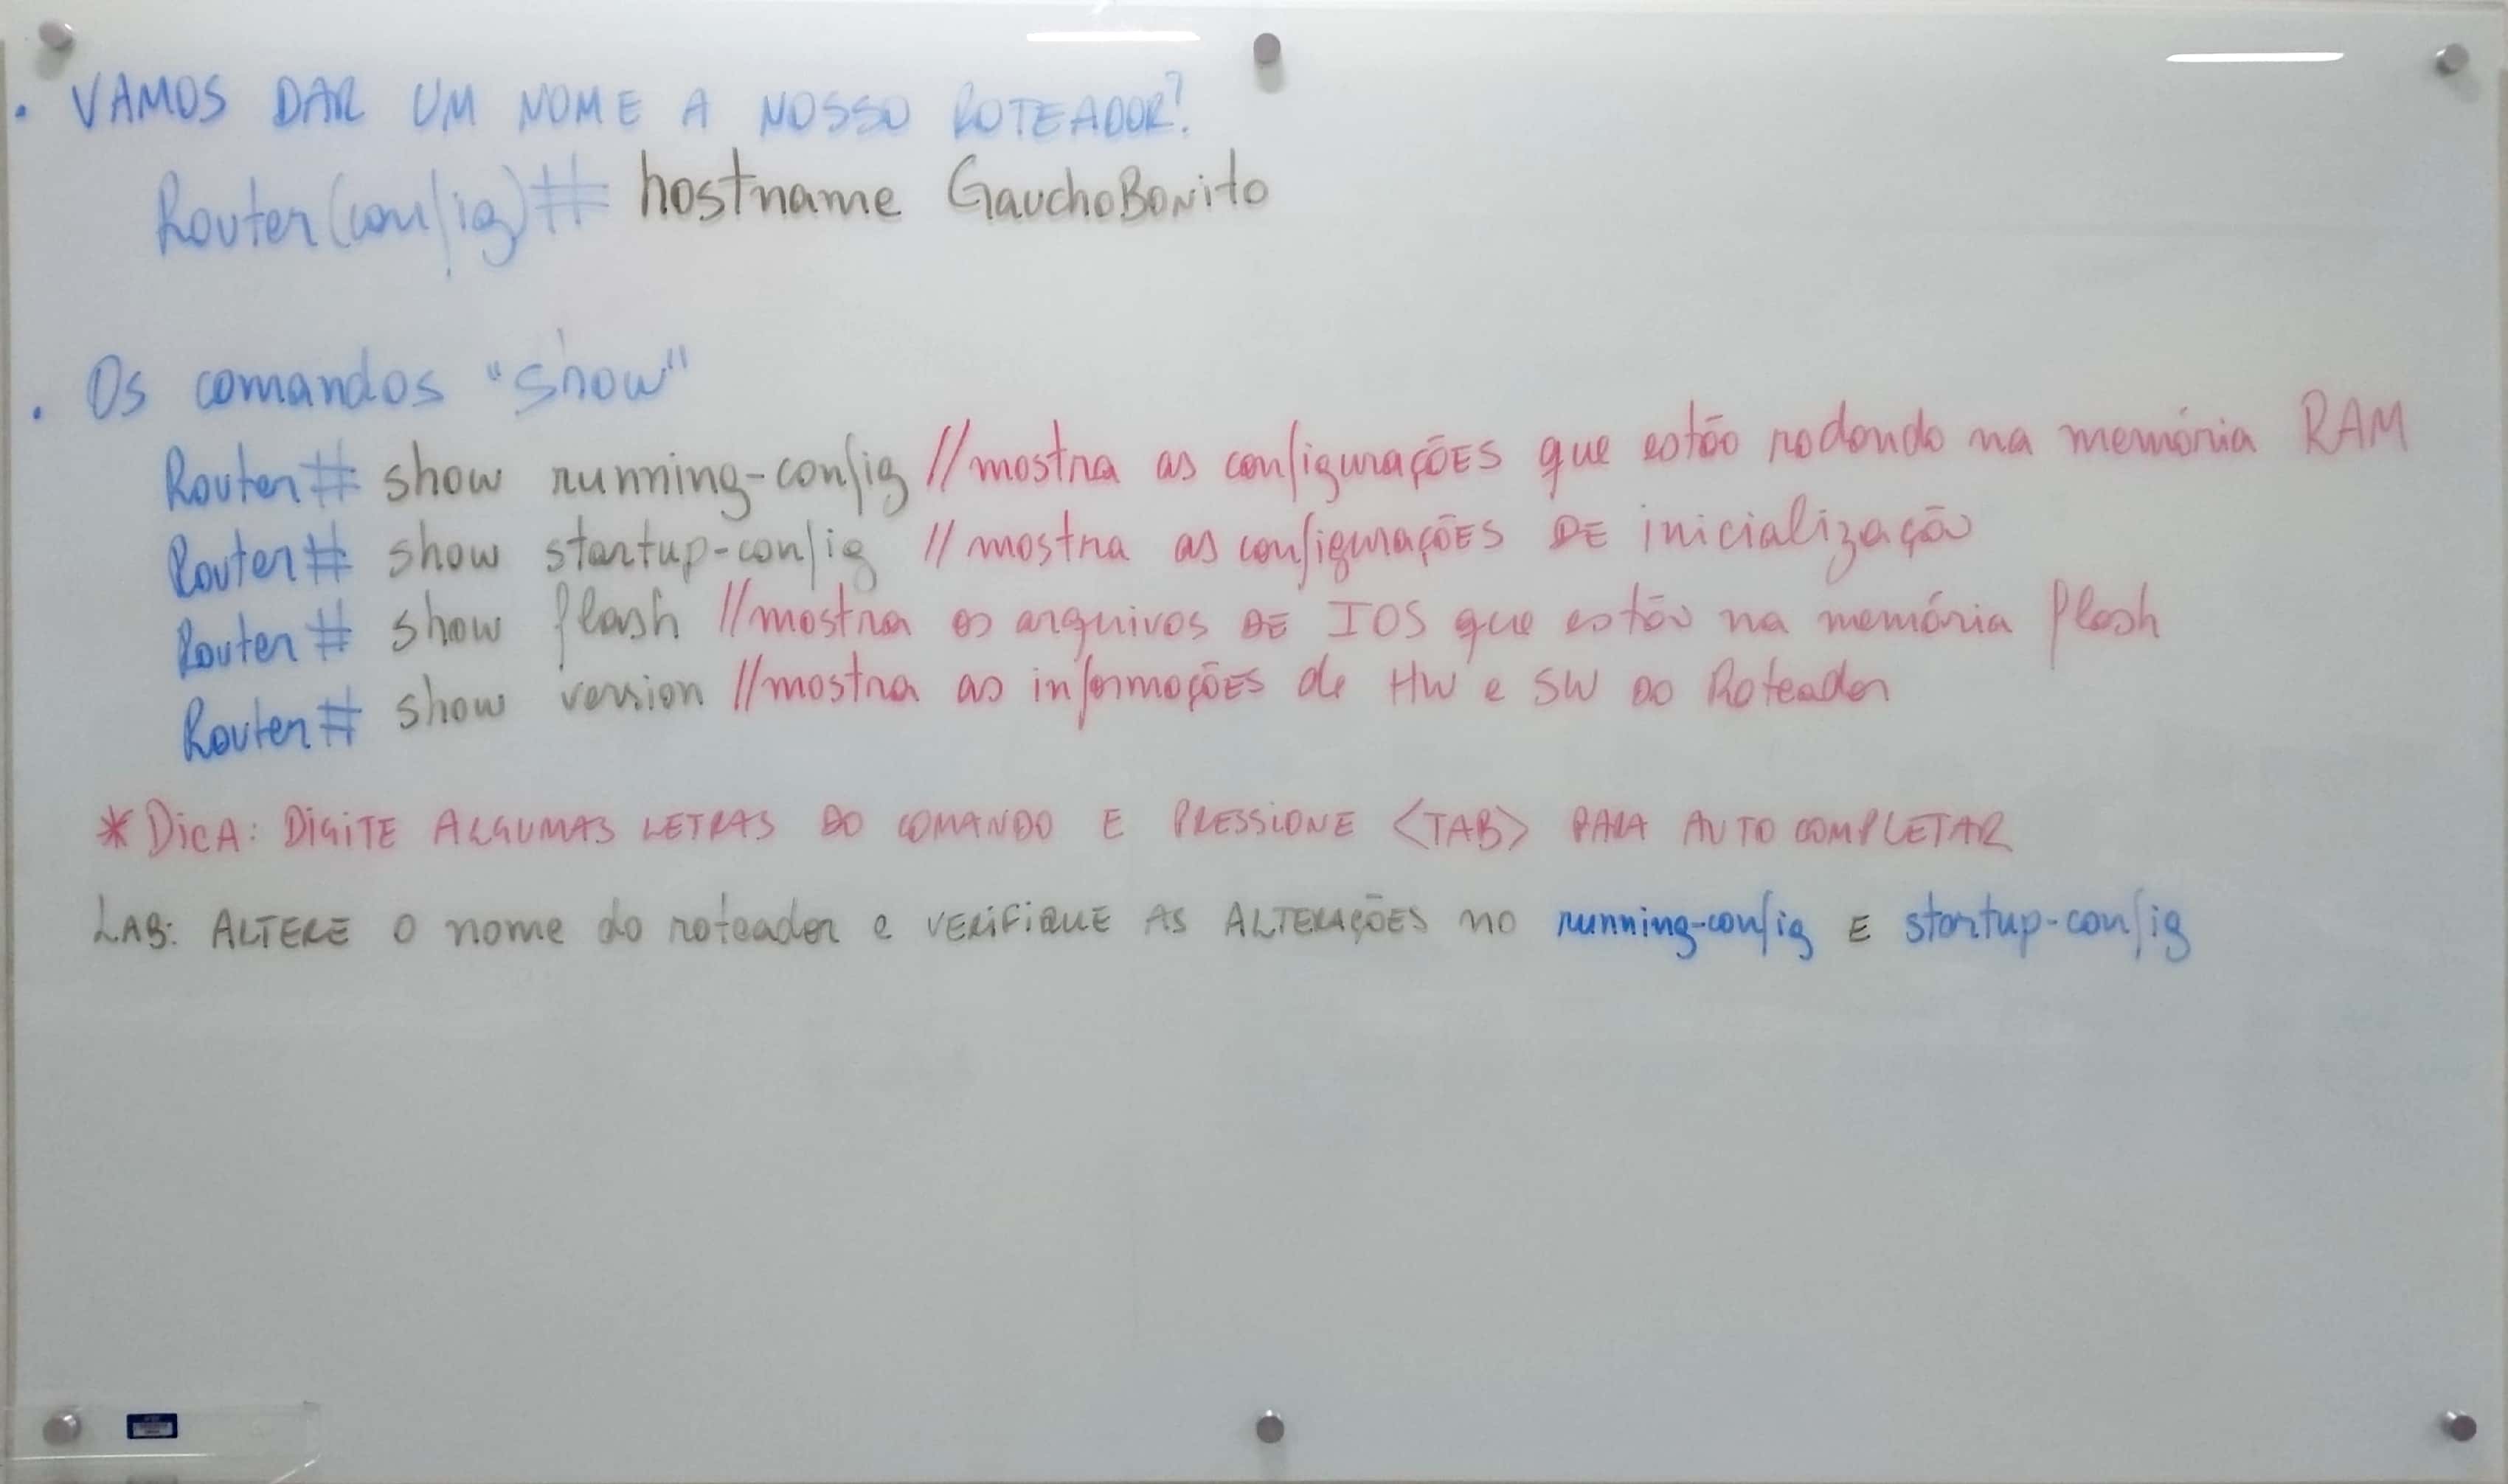 . VAMOS DAR UM NOME A NOSSO ROTEADOR?
Router(config)# hostname GauchoBonito
. Os comandos "show"
Router# show running-config //mostra as configurações que estão rodando na memória RAM
Router# show startup-config // mostra as configurações DE inicialização
Router# show flash //mostra os arquivos DE IOS que estão na memória flash
Router# show version //mostra as informações de HW e SW DO Roteador
*DICA: DIGITE ALGUMAS LETRAS DO COMANDO E PRESSIONE <TAB> PARA AUTO COMPLETAR
LAB: ALTERE O nome do roteador e VERIFIQUE AS ALTERAÇÕES no running-config E startup-config